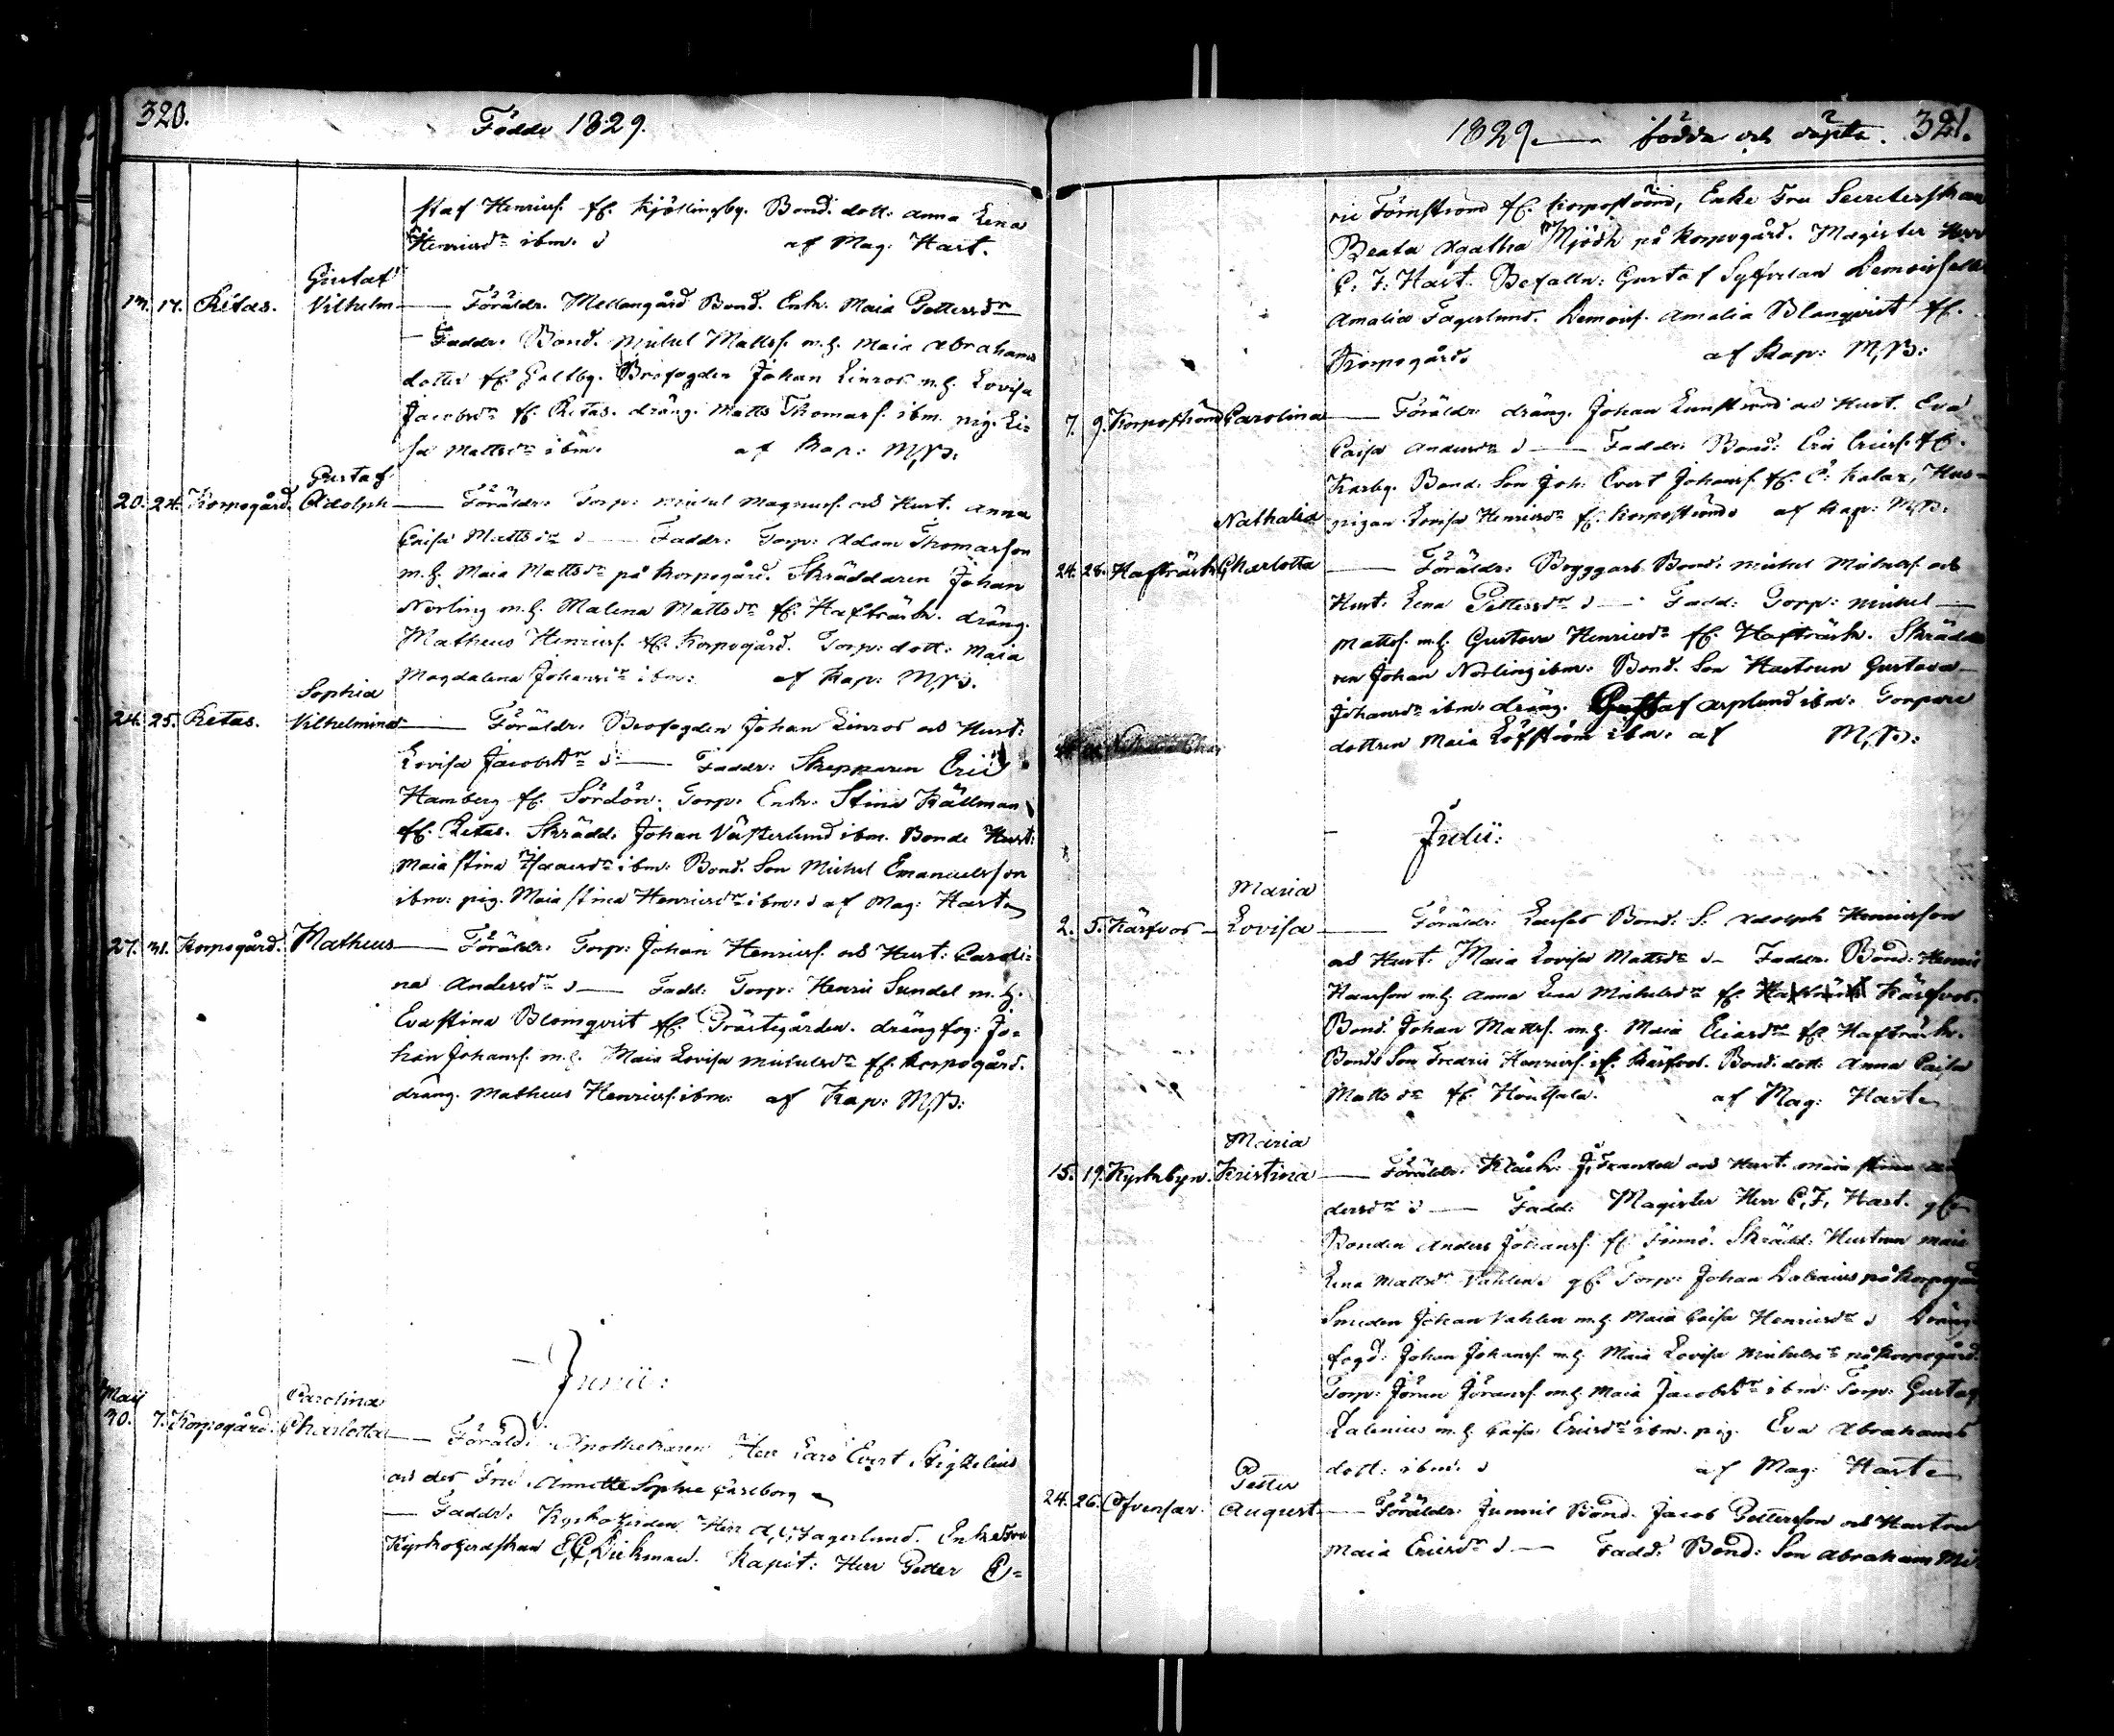 320.
Födde 1829.
staf Henricss. fr. Kjöttingsby. Bond. dott: Anna Lena
Henricsdr ibm. af Mag: Hart.
Gustaf
17. Retas. Vilhelm — Föräldr. Mellangård Bond. Enk: Maia Pettersdr
— Faddr. Bond. Mickel Mattss. m.h. Maia Abrahams
dotter fr. Galtby. Brofogden Johan Linros m.h. Lovisa
Jacobsdr fr. Retas. dräng. Matts Thomass. ibm. pig. Li-
sa Mattsdr ibm. af Kap: M,B:
Gustaf
20. 24. Korpogård. Adolph — Föräldr. Torp: Mickel Magnuss. och Hust. Anna
Caisa Mattsdr — Faddr: Torp: Adam Thomasson
m.h. Maia Mattsdr på Korpogård. Skräddaren Johan
Norling m.h. Malena Mattsdr fr. Hafträsk. dräng.
Matheus Henricss. fr. Korpogård. Torp: dott: Maia
Magdalena Johansdr ibm: af Kap: M,B.
Sophia
24. 25. Retas. Vilhelmina — Föräldr. Brofogden Johan Linros och Hust:
Lovisa Jacobsdr — Faddr: Skepparen Eric
Hamberg fr. Sördön. Torp: Enk: Stina Källman
fr. Retas. Skrädd: Johan Västerlund ibm. Bonde Hust:
Maia Stina Isaacsdr ibm: Bond. Son Mickel Emanuelsson
ibm: pig. Maia Stina Henricsdr ibm: af Mag: Hart
27. 31. Korpogård. Matheus — Föräldr: Torp: Johan Henricss. och Hust: Caroli-
na Andersdr — Fadd: Torp: Henric Sundel m.h.
Eva Stina Blomqvist fr. Prästegården. drängfog: Jo-
han Johanss. m.h. Maia Lovisa Mickelsdr fr. Korpogård.
dräng. Matheus Henricss. ibm: af Kap: M,B:
Junii:
Maij Carolina
30. 7. Korpogård. Charlotta — Föräld: Apothekaren Herr Lars Evert Stigzelius
och des Fru Annette Sophie Carlborg
— Faddr. Kyrkoherden Herr Fagerlund. Enkefru
Kyrkoherdskan E,C,Dickman. Kapit: Herr Peter C-
1829 — födda och döpta. 321.
ric Törnstrond fr. Korpoströmd, Enke Fru Secreterskan
Beata Agatha Mjödh på Korpogård. Magister Herr
C. F. Hart. Befalln: Gustaf Demoiselle
Amalia Fagerlund. Demois. Amalia Blanqvist fr.
Korpogård. af Kap: M,B:
7. 9. Korpoström Carolina — Föräldr: dräng. Johan Lunström och Hust. Eva
Caisa Andersdr — Faddr. Bond: Eric Ericss. fr.
Karby. Bond. Son Joh: Evert Johanss. fr. Kalax, Hus-
pigan Lovisa Henricsdr fr. Korpoström. af Kap: M,B:
Nathalia
24. 28. Hafträsk Charlotta — Föräldr: Bryggars Bond: Mickel Mickelss. och
Hust. Lena Pettersdr — Fadd: Torp: Mickel —
Mattss. m.h. Gustava Henricsdr fr. Hafträsk. Skrädda
ren Johan Norling ibm: Bond. Son Hustrun Gustava
Johansdr ibm. dräng. Gustaf Asplund ibm. Torpare
dottren Maia Löfström ibm. af M,B:
Julii:
Maria
2. 5. Kärfvos — Lovisa — Föräldr: Larsas Bond: S. Adolph Henricsson
och Hust. Maia Lovisa Mattsdr — Faddr. Bond: Henric
Hansson m.h. Anna Lisa Mickelsdr fr. Kärfvos.
Bond. Johan Mattss. m.h. Maia Eliasdr fr. Hafträsk.
Bonds Son Fredric Henricss. fr. Kärfvos. Bond. dott: Anna Caisa
Mattsdr fr. af Mag: Hart
Maria
15. 19. Kyrkbyn. Kristina — Föräldr. Klåck: J, Franzell och Hust. Maia Stina An
dersdr — Fadd: Magister Herr C,F, Hart.
Bonden Anders Johanss. fr. Finnö. Skrädd: Hustrun Maia
Lena Mattsdr Vahlen. Torp: Johan på Korpogård
Smeden Johan Vahlen m.h. Maia Caisa Henricsdr Dräng
fogd: Johan Johanss. m.h. Maia Lovisa Mickelsdr på Korpogård.
Torp: Jöran Jöranss. m.h. Maia Jacobsdr ibm: Torp: Gustaf
m.h. Caisa Ericsdr ibm. pig. Eva Abrahams
dott: ibm. af Mag: Hart
Petter
24. 26. Ofvensar. August — Föräldr: Bond. Jacob Pettersson och Hustru
Maia Ericsdr — Fadd: Bond: Son Abraham Mi